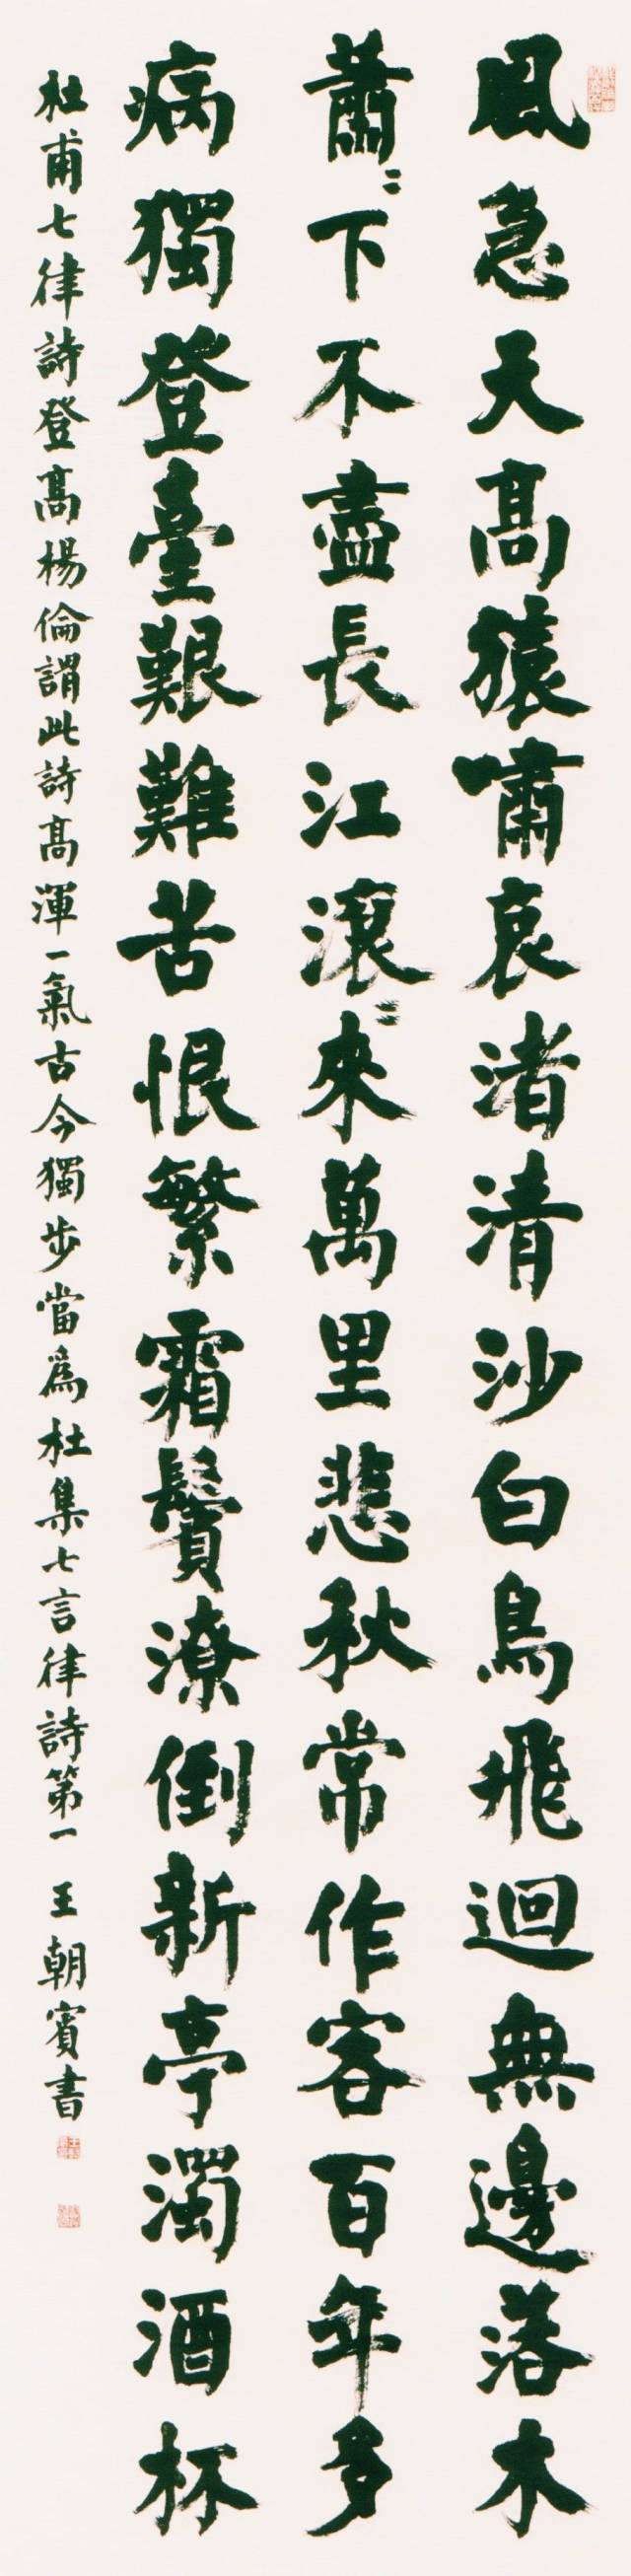 風急天高猿嘯哀渚清沙白鳥飛迴無邊落木
蕭〻下不盡長江滾〻來萬里悲秋常作客百年多
病獨登臺艱難苦恨繁霜鬢潦倒新亭濁酒杯
杜甫七律詩登高楊倫謂此詩高渾一氣古今獨步當為杜集七言律詩第一 王朝賓書